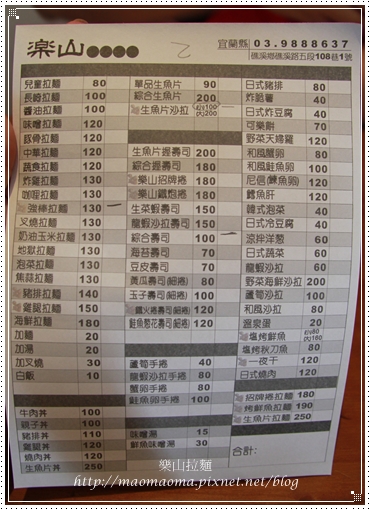 楽山●●●●
乙
宜蘭縣 03.9888637
礁溪鄉礁溪路五段108巷1號
兒童拉麵 80
長崎拉麵 100
醬油拉麵 100
味噌拉麵 120
豚骨拉麵 120
中華拉麵 120
蔬食拉麵 120
炸雞拉麵 130
咖哩拉麵 130
強棒拉麵 130 一
叉燒拉麵 130
奶油玉米拉麵 130
地獄拉麵 130
泡菜拉麵 130
焦蒜拉麵 130
豬排拉麵 140
雞腿拉麵 150
海鮮拉麵 180
加麵 20
加湯 20
加叉燒 30
白飯 10
牛肉丼 100
親子丼 100
豬排丼 110
雞腿丼 120
燒肉丼 120
生魚片丼 250
單品生魚片 90
綜合生魚片 200
生魚片沙拉 小100 大200 一
生魚片握壽司 200
綜合握壽司 180
樂山招牌捲 180
樂山鐵炮捲 180
生菜蝦壽司 150
龍蝦沙拉壽司 150
綜合壽司 100 一
海苔壽司 70
豆皮壽司 70
黃瓜壽司(細捲) 80
玉子壽司(細捲) 100
鐵火捲壽司(細捲) 120
鮭魚蔥花壽司(細捲) 120
蘆筍手捲 40
龍蝦沙拉手捲 80
蟹卵手捲 80
鮭魚卵手捲 100
味噌湯 15
鮮魚味噌湯 30
日式豬排 80
炸脆薯 40
日式炸豆腐 40
可樂餅 70
野菜天婦羅 120
和風蟹卵 80
和風鮭魚卵 100
鱈魚肝 120
韓式泡菜 40
日式冷豆腐 40
涼拌洋蔥 60
日式蔬菜 60
龍蝦沙拉 60
野菜海鮮沙拉 200
蘆筍沙拉 100
和風沙拉 80
溫泉蛋 20
塩烤鮮魚
塩烤秋刀魚 80
一夜干 120
日式燒肉 120
招牌拉麵 180
烤鮮魚拉麵 190
生魚片拉麵 250
合計:
樂山拉麵
http://maomaoma.pixnet.net/blog